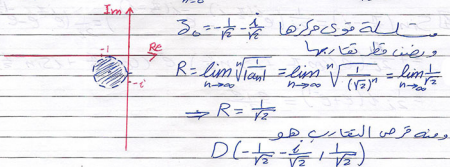 Im
سلسلة قوى مركزها z₀ = -1/√2 - i/√2
-1 Re
ونصف قطر تقاربها
-i R = lim_{n→∞} ⁿ√|1/an| = lim_{n→∞} ⁿ√(1/(√2)ⁿ) = lim_{n→∞} 1/√2
⇒ R = 1/√2
ومنه قرص التقارب هو
D(-1/√2 - i/√2, 1/√2)